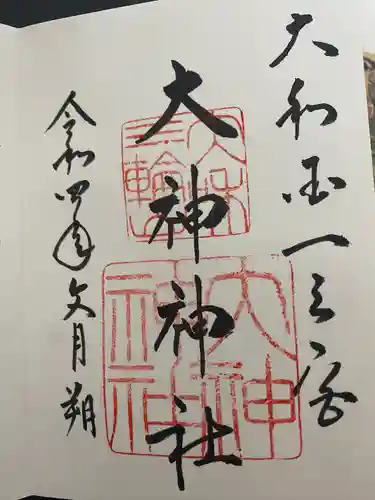 大和国一之宮
大神神社
令和四年文月朔
三輪
大神
神社